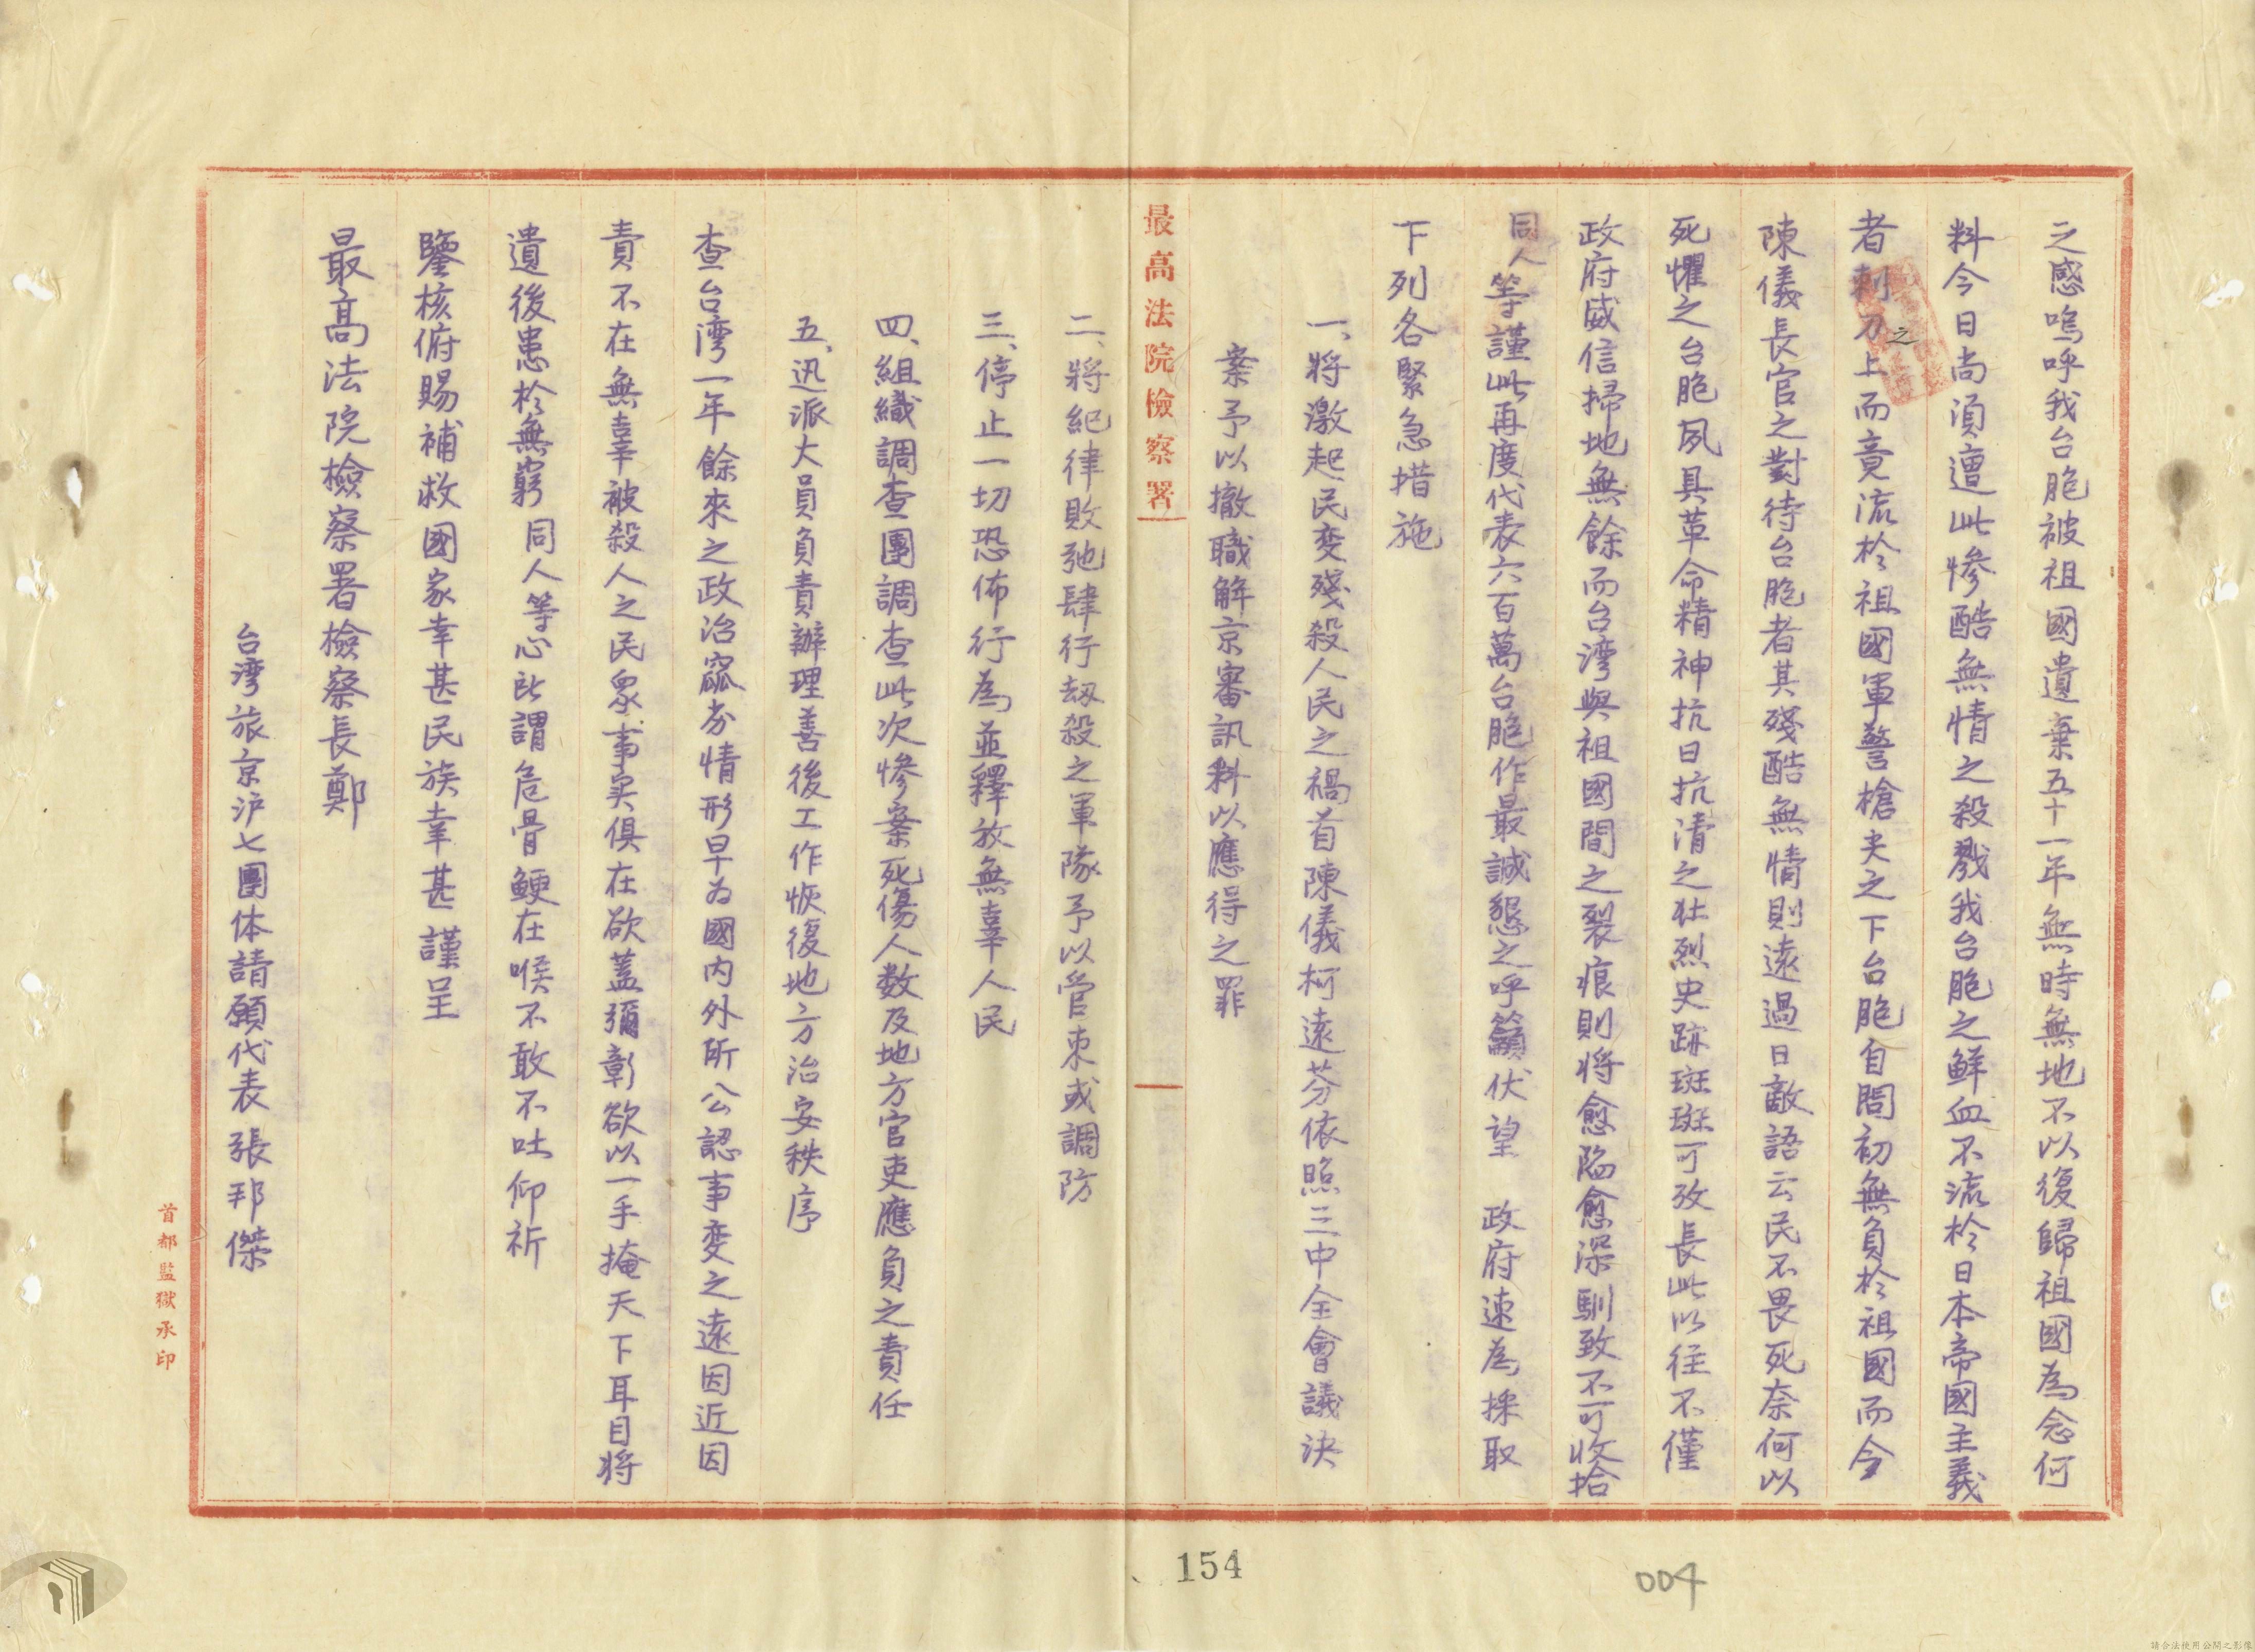 之感嗚呼我台胞被祖國遺棄五十一年無時無地不以復歸祖國為念何
料今日尚須遭此慘酷無情之殺戮我台胞之鮮血不流於日本帝國主義
者之刺刀上而竟流於祖國軍警槍夾之下台胞自問初無負於祖國而今
陳儀長官之對待台胞者其殘酷無情則遠過日敵語云民不畏死奈何以
死懼之台胞夙具革命精神抗日抗清之壯烈史跡斑斑可攷長此以往不僅
政府威信掃地無餘而台湾與祖國間之裂痕則将愈陷愈深馴致不可收拾
同人等謹此再度代表六百萬台胞作最誠懇之呼籲伏望 政府速為採取
下列各緊急措施
一、將激起民变殘殺人民之禍首陳儀柯遠芬依照三中全會議決
案予以撤職解京審訊科以應得之罪
最高法院檢察署
二、將紀律敗弛肆行劫殺之軍隊予以管束或調防
三、停止一切恐佈行為並釋放無辜人民
四、組織調查團調查此次慘案死傷人数及地方官吏應負之責任
五、迅派大員負責辦理善後工作恢復地方治安秩序
查台湾一年餘來之政治窳劣情形早為國内外所公認事变之遠因近因
責不在無辜被殺人之民眾事实俱在欲蓋彌彰欲以一手掩天下耳目将
遺後患於無窮 同人等心所謂危骨鯁在喉不敢不吐仰祈
鑒核俯賜補救國家幸甚民族幸甚 謹呈
最高法院檢察署檢察長鄭
台湾旅京沪七團体請願代表張邦傑
首都監獄承印
154
004
請合法使用公開之影像